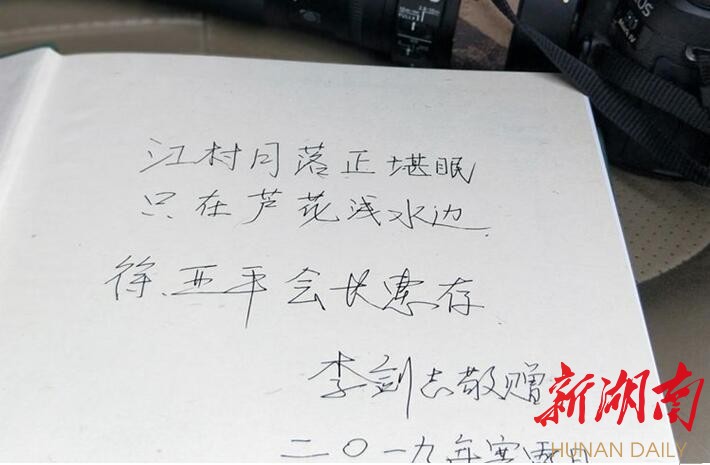 江村月落正堪眠
只在芦花浅水边
徐亚平会长惠存
李剑志敬赠
二〇一九年寒露日
新湖南
HUNAN DAILY